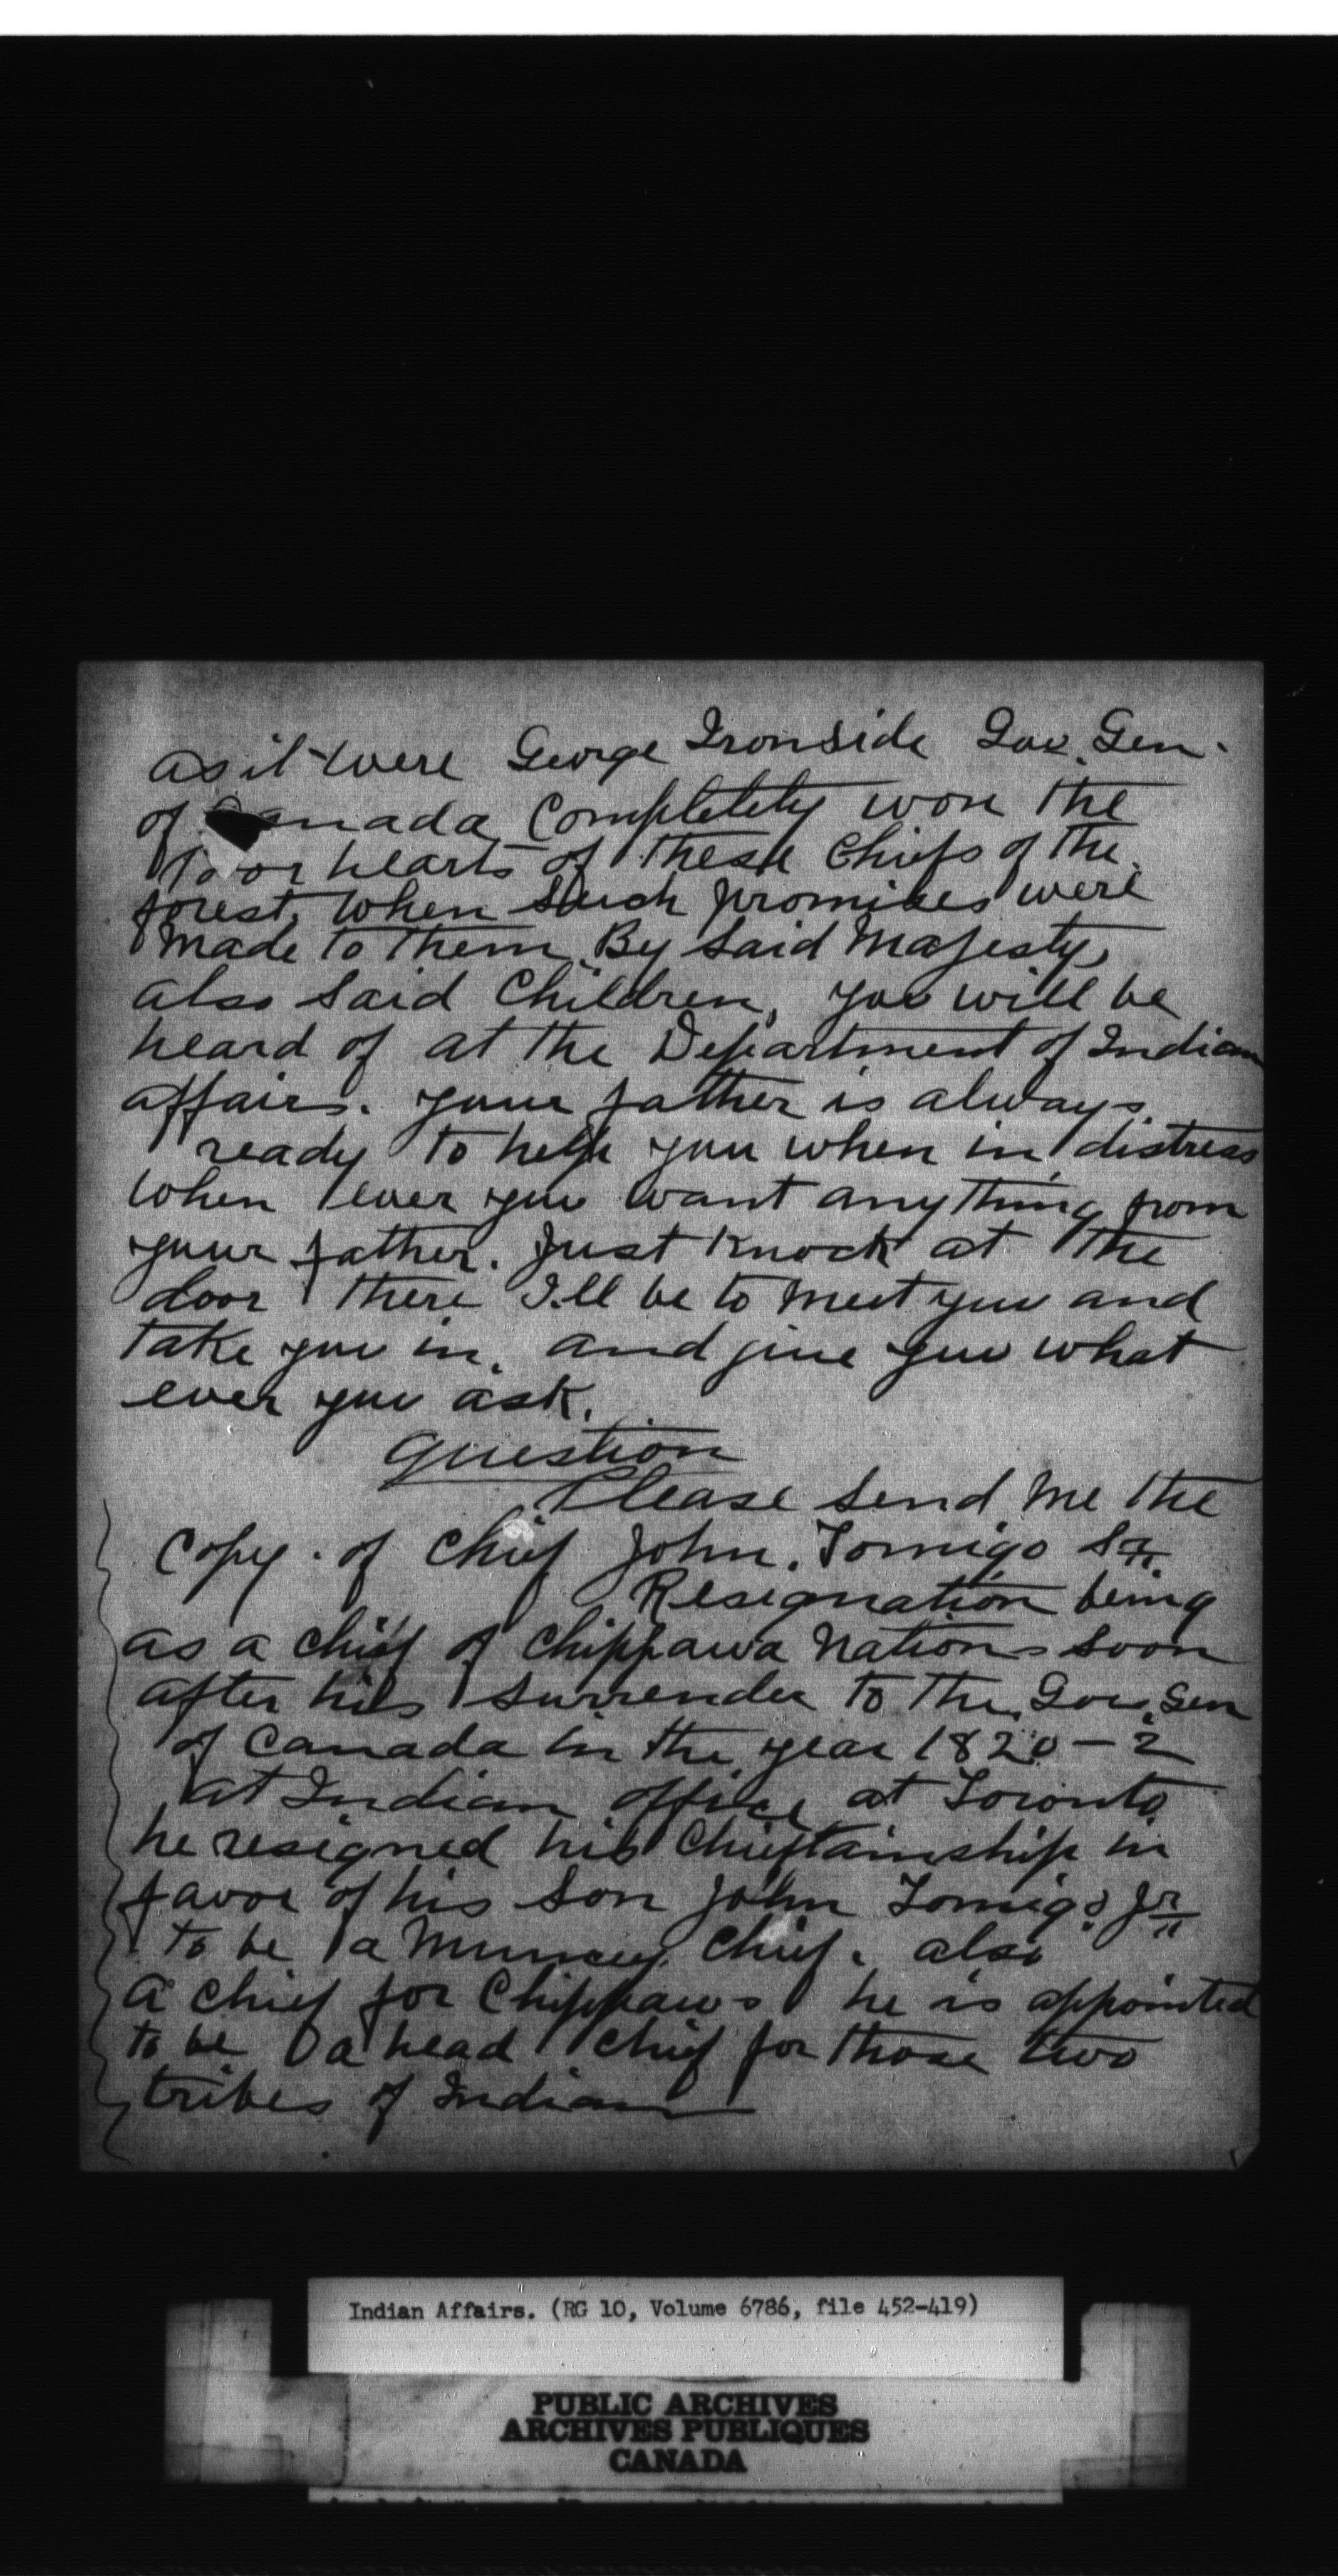 as it were George Ironside Gov. Gen.
of Canada Completely won the
Poor hearts of these Chiefs of the
forest. When such promises were
made to them. By said Majesty,
also said Children, you will be
heard of at the Department of Indian
affairs. your father is always
ready to help you when in distress
When ever you want anything from
your father. Just Knock at the
door there I.ll be to meet you and
take you in. and give you what
ever you ask.
Question
Please send me the
Copy. of Chief John. Tomigo Sr.
Resignation being
as a chief of Chippawa Nations soon
after his surrender to the Gov. Gen
of Canada in the year 1820-2
at Indian office at Toronto
he resigned his Chieftainship in
favor of his son John Tomigo Jr
to be a Muncey Chief. also
a chief for Chippaws he is appointed
to be a head chief for those two
tribes of Indian
Indian Affairs. (RG 10, Volume 6786, file 452-419)
PUBLIC ARCHIVES
ARCHIVES PUBLIQUES
CANADA